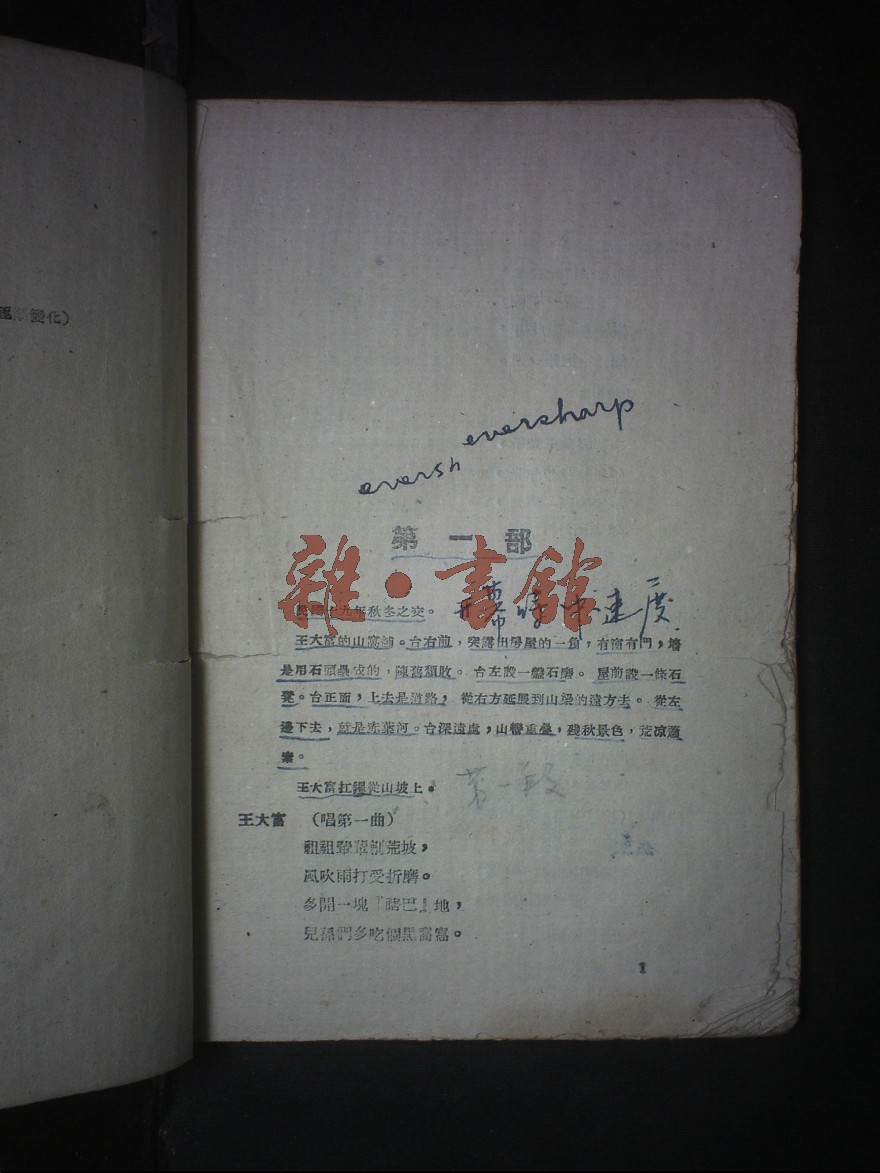 變化）
eversh eversharp
第一部
雜·書館
民國十九年秋冬之交。
開幕時中速度
王大富的山窩鋪。台右前，突露出房屋的一角，有窗有門，墻
是用石頭壘成的，陳舊頹敗。台左設一盤石磨。屋前設一條石
凳。台正面，上去是道路，從右方延展到山梁的遠方去。從左
邊下去，就是赤葉河。台深遠處，山巒重疊，殘秋景色，荒凉蕭
索。
王大富扛鐝從山坡上。
第一段
王大富 （唱第一曲）
祖祖輩輩刨荒坡，
風吹雨打受折磨。
多開一塊『瞎巴』地，
兒孫們多吃個黑窩窩。
1